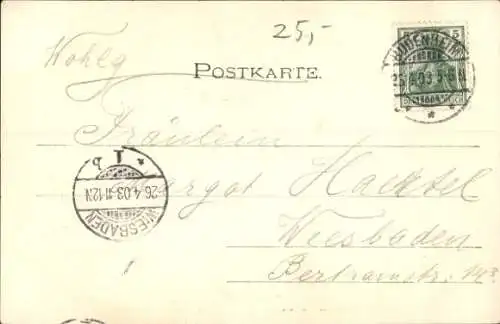 25,-
Wohlg
POSTKARTE.
BODENHEIM
Fräulein
Margot Hacktel
Wiesbaden
Bertramstr.
WIESBADEN
26.4.03.11-12N